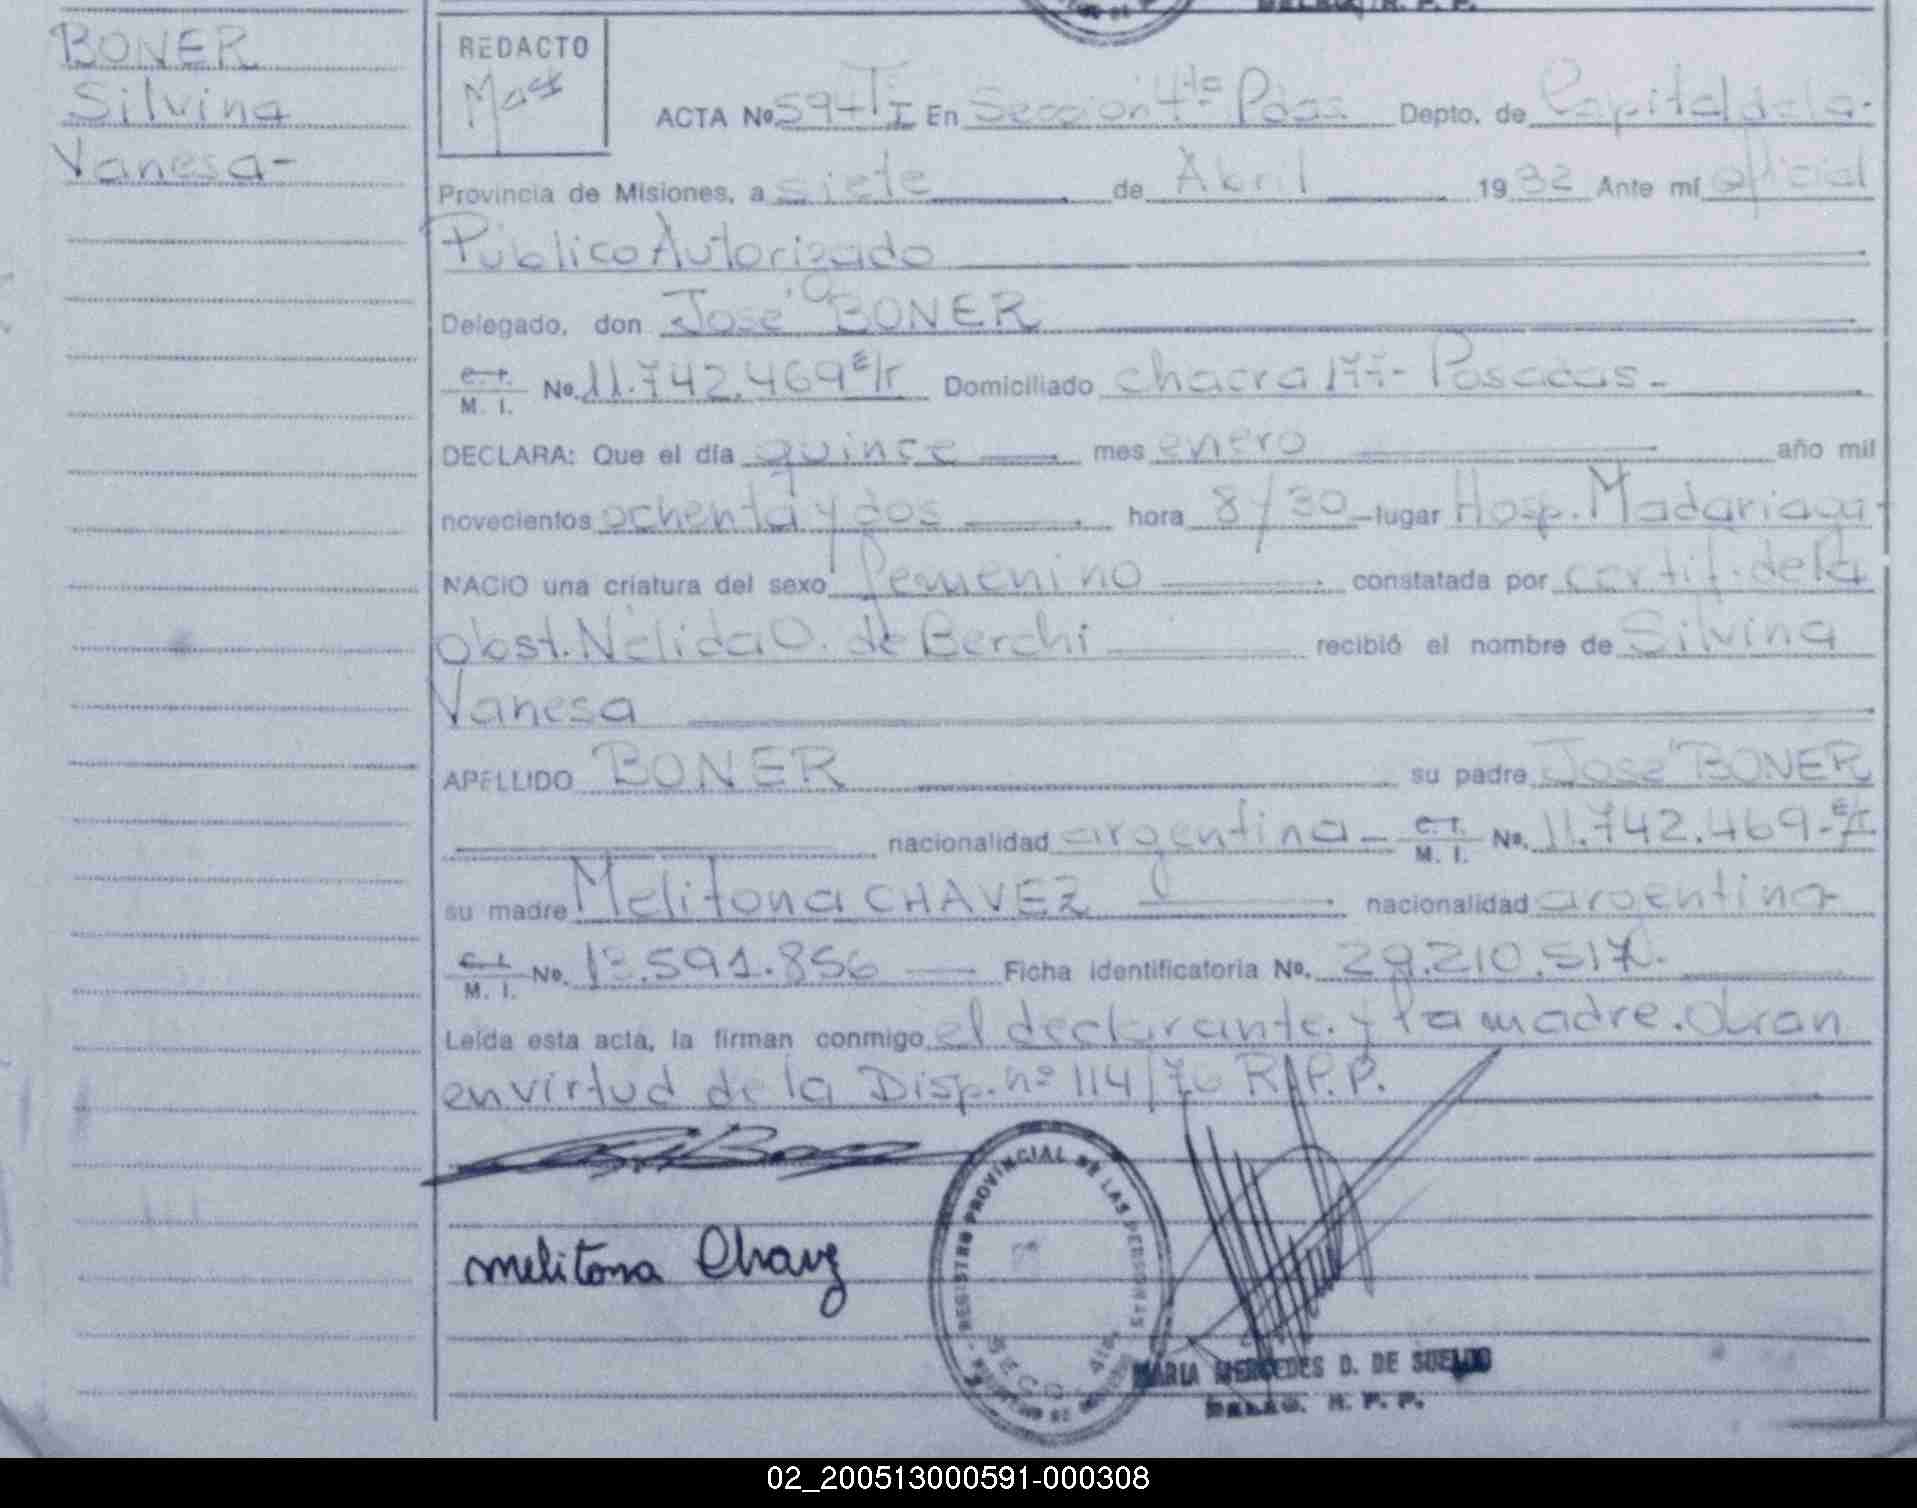 BONER
Silvina
Vanesa-
REDACTO
ACTA Nº 594 T I En Seccion 4ta Pdas. Depto. de Capital de la
Provincia de Misiones, a siete de Abril 1982 Ante mí oficial
Público Autorizado
Delegado, don José BONER
C. I. M. I. No. 11.742.469 E/t Domiciliado chacra 177- Posadas-
DECLARA: Que el día quince mes enero año mil
novecientos ochenta y dos hora 8/30 lugar Hosp. Madariaga-
NACIO una criatura del sexo femenino constatada por certif. de la
obst. Nélida O. de Berchi recibió el nombre de Silvina
Vanesa
APELLIDO BONER su padre José BONER
nacionalidad argentina- C. I. M. I. No. 11.742.469-E/t
su madre Melitona CHAVEZ nacionalidad argentina
C. I. M. I. No. 591.856 Ficha identificatoria No. 29.210.517.
Leída esta acta, la firman conmigo el declarante. y la madre. Obran
en virtud de la Disp. nº 114/76 R.P.P.
melitona Chavez
REGISTRO PROVINCIAL DE LAS PERSONAS
SECC. 4ta.
MARIA MERCEDES D. DE SUELDO
DELEG. R. P. P.
02_200513000591-000308